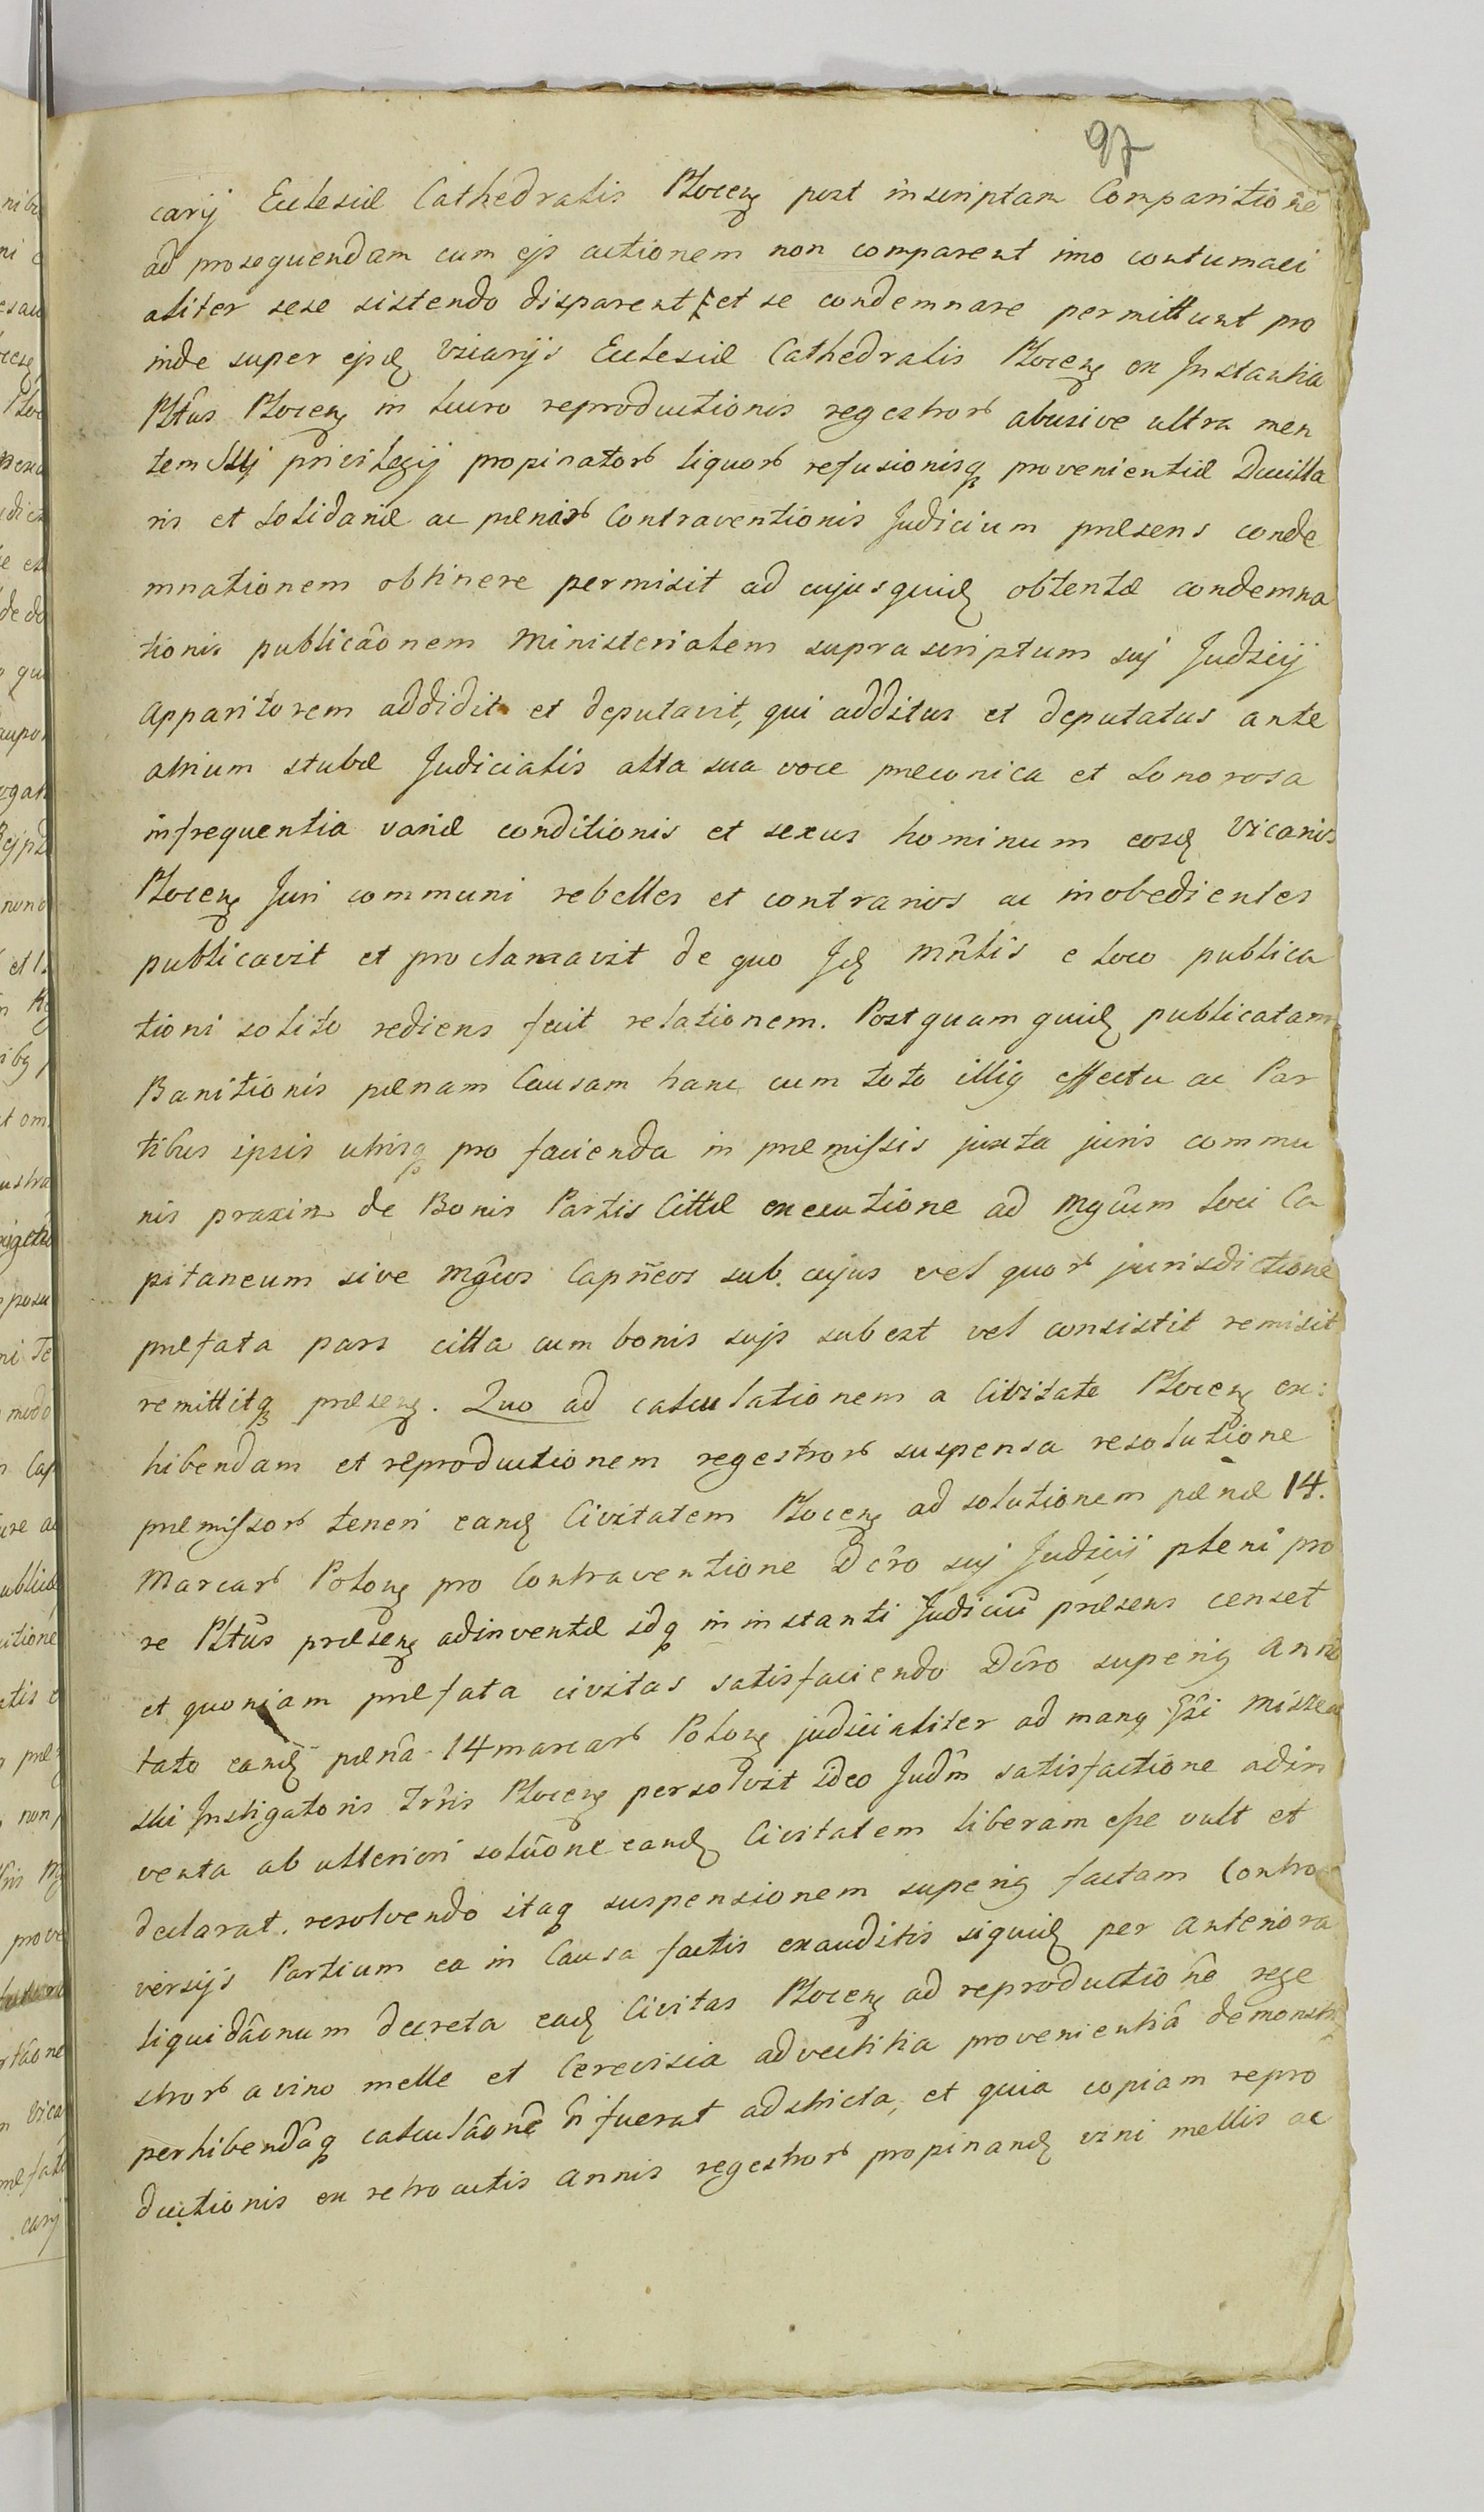 97
carij Ecclesiæ Cathedralis Plocen post inscriptam Comparitionē
ad prosequendam cum ejs actionem non comparent imo contumaci
aliter sese sistendo disparent et se condemnare permittunt pro
inde super ejsd Vicarijs Ecclesiæ Cathedralis Plocen ex Instantia
Plocen in lucro reproductionis regestror abusive ultra men
tem privilegij propinator liquor refusionisq provenientiæ Ducilla
ris et Solidariæ ac pænar Contraventionis Judicium præsens conde
mnationem obtinere permisit ad cujusquid obtentæ condemna
tionis publicaônem Ministerialem supra scriptum suj Judicij
Apparitorem addidit et deputavit, qui additus et deputatus ante
atrium stubæ Judicialis alta sua voce præconica et Sonorosa
in frequentia variæ conditionis et sexus hominum eosd Vicarios
Plocen Juri communi rebelles et contrarios ac inobedientes
publicavit et proclamavit de quo Id Mñlis e loco publica
tioni solito rediens fecit relationem. Post quam quid publicatam
Banitionis pænam Causam hanc cum toto illig effectu ac Par
tibus ipsis utrisq pro facienda in præmissis juxta juris commu
nis praxim de Bonis Partis Cittæ executione ad Mgcûm loci Ca
pitaneum sive Mgcôs Capñeos sub cujus vel quor jurisdictione
præfata pars citta cum bonis sujs subest vel consistit remisit
remittitq præsen. Quo ad calculationem a Civitate Plocen ex:
hibendam et reproductionem regestror suspensa resolutione
præmissor teneri eand Civitatem Plocen ad solutionem pænæ 14.
Marcar Polon pro Contraventione Dcro suj Judicij pleni pro
re præsen adinventæ idq in instanti Judiciû præsens censet
et quoniam præfata civitas satisfaciendo Dcro superig anno
tato eand pænâ 14 marcar Polon judicialiter ad mang
Instigatoris Plocen persolvit ideo Judm satisfactione adin
venta ab ulteriori solûone eand Civitatem liberam esse vult et
declarat. resolvendo itaq suspensionem superig factam Contro
versijs Partium ea in Causa factis exauditis siquid per anteriora
liquidâonum decreta ead Civitas Plocen ad reproductionê rege
stror a vino melle et Cerevisia advectitia provenientiâ demonstr
perhibendâq calculâonê fuerat adstricta, et quia copiam repro
ductionis ex retroactis annis regestror propinand vini mellis ac